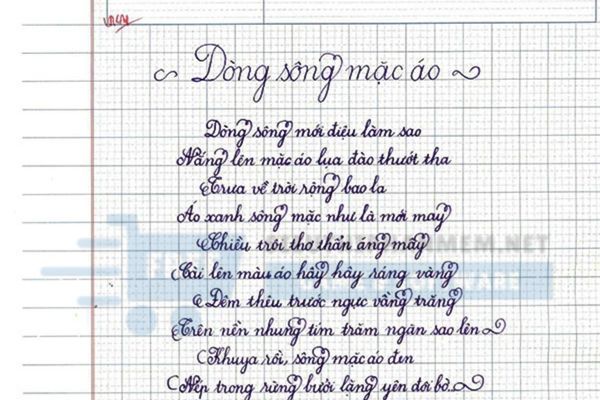 Dòng sông mặc áo
Dòng sông mới điệu làm sao
Nắng lên mặc áo lụa đào thướt tha
Trưa về trời rộng bao la
Áo xanh sông mặc như là mới may
Chiều trôi thơ thẩn áng mây
Cài lên màu áo hây hây ráng vàng
Đêm thêu trước ngực vầng trăng
Trên nền nhung tím trăm ngàn sao lên
Khuya rồi, sông mặc áo đen
Nép trong rừng bưởi lặng yên đôi bờ..